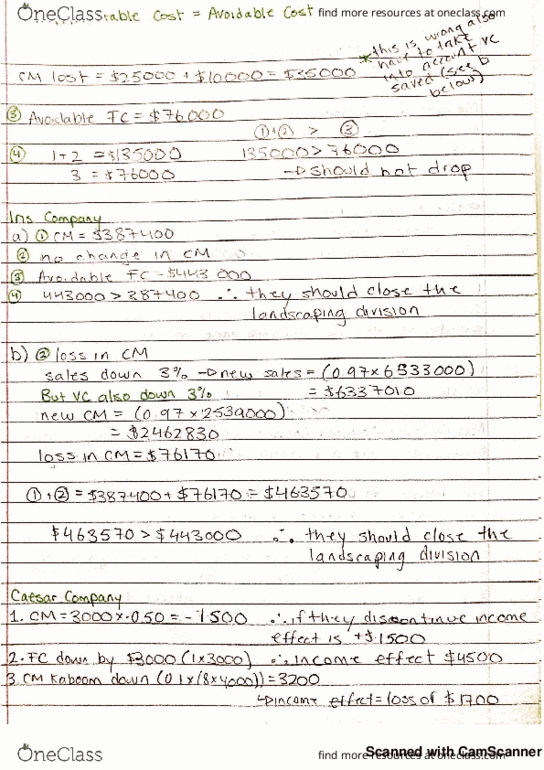 OneClass
find more resources at oneclass.com
Cost = Avoidable Cost
*this is wrong also
have to take
into account VC
saved (see b
below)
CM lost = $25000 + $10000 = $35000
③ Avoidable FC = $76000
①+② > ③
④ 1+2 = $135000 135000>76000
3 = $76000 → should not drop
Iris Company
a) ① CM = $387400
② no change in CM
③ Avoidable FC - $443 000
④ 443000 > 387400 ∴ they should close the
landscaping division
b) ② loss in CM
sales down 3% → new sales = (0.97×6533000)
But VC also down 3% = $6337010
new CM = (0.97×2539000)
= $2462830
loss in CM = $76170
①+② = $387400 + $76170 = $463570
$463570 > $443000 ∴ they should close the
landscaping division
Caesar Company
1. CM = 3000×-0.50 = -1500 ∴ if they discontinue income
effect is +$1500
2. FC down by $3000 (1×3000) ∴ income effect $4500
3. CM Kaboom down (0.1×(8×4000)) = 3200
↳ income effect = loss of $1700
OneClass
find more resources at oneclass.com
Scanned with CamScanner